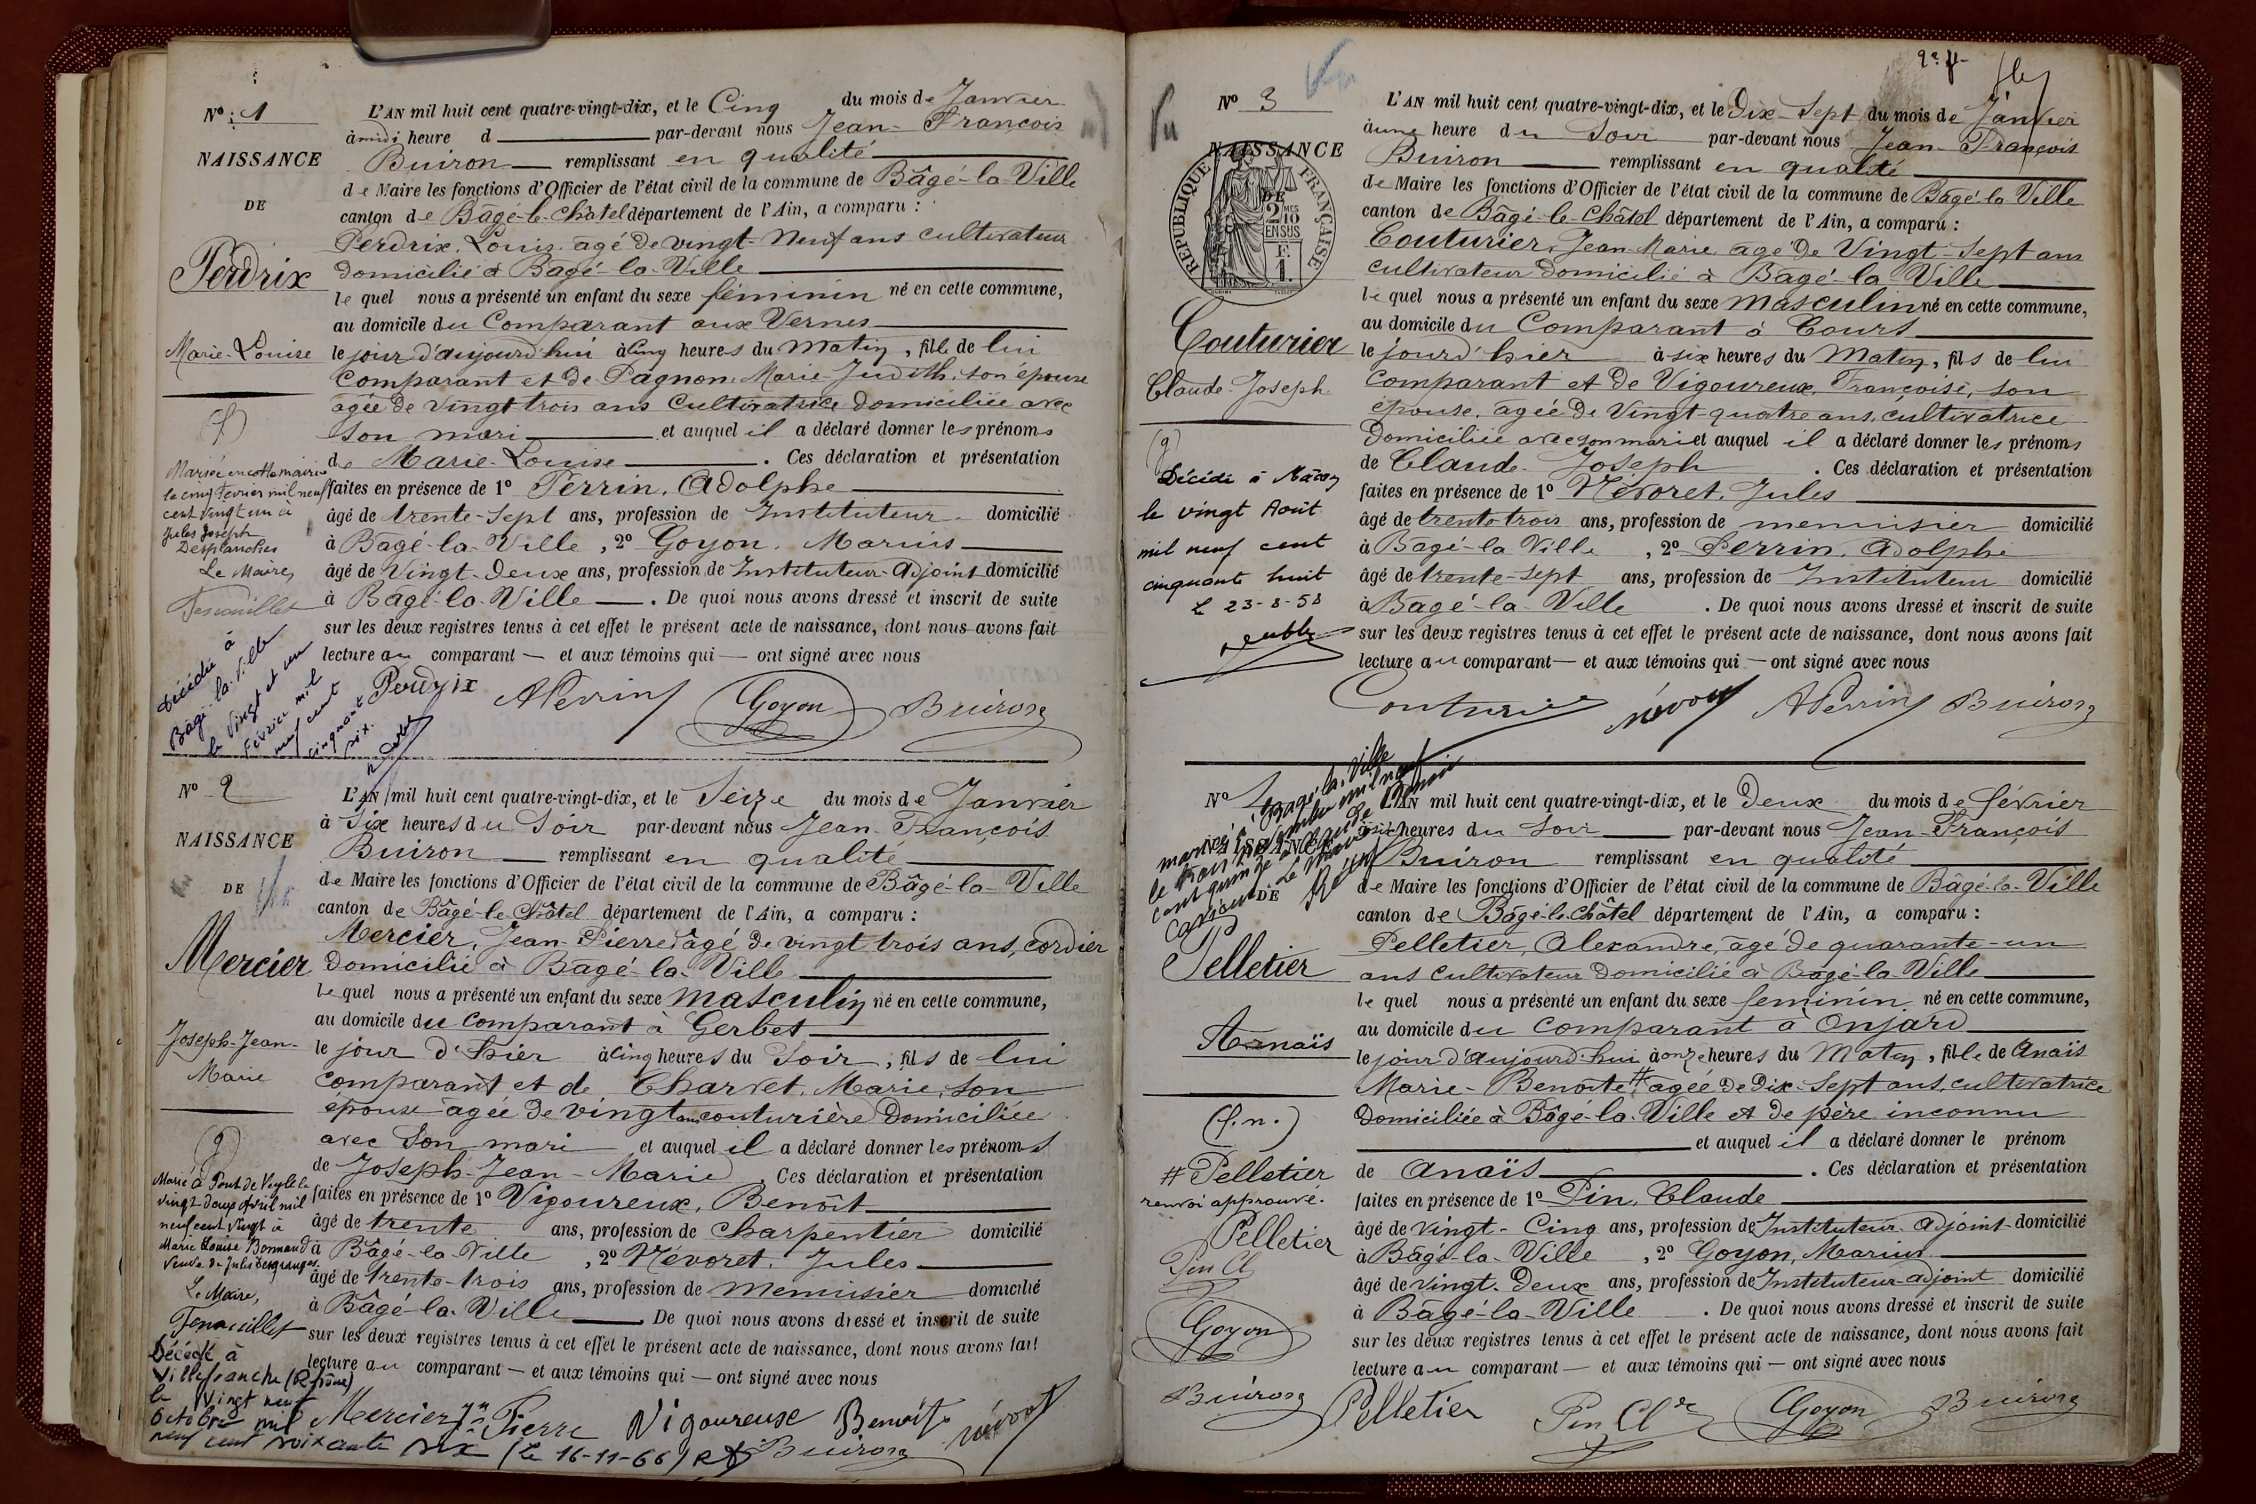 Nº 1
NAISSANCE
DE
Perdrix
Marie-Louise
L'AN mil huit cent quatre-vingt-dix, et le Cinq du mois de Janvier
à midi heure d par-devant nous Jean-François
Buiron remplissant en qualité
de Maire les fonctions d'Officier de l'état civil de la commune de Bâgé-la-Ville
canton de Bâgé-le-Châtel département de l'Ain, a comparu :
Perdrix, Louis, agé de vingt-neuf ans cultivateur
domicilié à Bâgé-la-Ville
lequel nous a présenté un enfant du sexe féminin né en cette commune,
au domicile du Comparant aux Vernes
le jour d'aujourd'hui à cinq heures du matin, fille de lui
comparant et de Pagnon, Marie Judith, son épouse
agée de vingt trois ans cultivatrice domiciliée avec
son mari et auquel il a déclaré donner les prénoms
de Marie-Louise. Ces déclaration et présentation
faites en présence de 1º Perrin, Adolphe
âgé de trente-sept ans, profession de Instituteur domicilié
à Bâgé-la-Ville, 2º Goyon, Marius
âgé de Vingt-deux ans, profession de Instituteur-Adjoint domicilié
à Bâgé-la-Ville. De quoi nous avons dressé et inscrit de suite
sur les deux registres tenus à cet effet le présent acte de naissance, dont nous avons fait
lecture au comparant — et aux témoins qui — ont signé avec nous
Perdrix APerrin Goyon Buiron
Mariée en cette mairie
le cinq Février mil neuf
cent vingt un à
Jules Joseph
Desplanches
Le Maire,
Fenouillet
Décédée à
Bâgé-la-Ville
le Vingt et un
Février mil
neuf cent
cinquante
six.
Nº 2
NAISSANCE
DE
Mercier
Joseph-Jean-
Marie
L'AN mil huit cent quatre-vingt-dix, et le Seize du mois de Janvier
à Six heures du Soir par-devant nous Jean-François
Buiron remplissant en qualité
de Maire les fonctions d'Officier de l'état civil de la commune de Bâgé-la-Ville
canton de Bâgé-le-Châtel département de l'Ain, a comparu :
Mercier, Jean-Pierre âgé de vingt trois ans, cordier
domicilié à Bâgé-la-Ville
lequel nous a présenté un enfant du sexe masculin né en cette commune,
au domicile du comparant à Gerbet
le jour d'hier à cinq heures du Soir, fils de lui
comparant et de Charvet, Marie, son
épouse agée de vingt ans couturière domiciliée
avec son mari et auquel il a déclaré donner les prénoms
de Joseph-Jean-Marie. Ces déclaration et présentation
faites en présence de 1º Vigoureux, Benoît
âgé de trente ans, profession de charpentier domicilié
à Bâgé-la-Ville, 2º Névoret, Jules
âgé de trente-trois ans, profession de Menuisier domicilié
à Bâgé-la-Ville. De quoi nous avons dressé et inscrit de suite
sur les deux registres tenus à cet effet le présent acte de naissance, dont nous avons fait
lecture au comparant — et aux témoins qui — ont signé avec nous
Mercier Jn Pierre Vigoureuse Benoit Buiron
Marié à Pont de Veyle le
vingt-deux Avril mil
neuf cent vingt à
Marie Louise Bonnand
Veuve de Jules Desgranges.
Le Maire,
Fenouillet
Décédé à
Villefranche (Rhône)
le Vingt neuf
Octobre mil
neuf cent soixante six (Le 16-11-66)
2e f
Nº 3
NAISSANCE
DE
RÉPUBLIQUE FRANÇAISE
2 MES
10
EN SUS
F.
1
Couturier
Claude-Joseph
L'AN mil huit cent quatre-vingt-dix, et le Dix-Sept du mois de Janvier
à une heure du Soir par-devant nous Jean-François
Buiron remplissant en qualité
de Maire les fonctions d'Officier de l'état civil de la commune de Bâgé-la-Ville
canton de Bâgé-le-Châtel département de l'Ain, a comparu :
Couturier, Jean-Marie agé de Vingt-sept ans
cultivateur domicilié à Bâgé-la-Ville
lequel nous a présenté un enfant du sexe masculin né en cette commune,
au domicile du Comparant à Cours
le jour d'hier à six heures du Matin, fils de lui
comparant et de Vigoureux, Françoise, son
épouse, agée de Vingt-quatre ans, cultivatrice
domiciliée avec son mari et auquel il a déclaré donner les prénoms
de Claude-Joseph. Ces déclaration et présentation
faites en présence de 1º Névoret, Jules
âgé de trente trois ans, profession de menuisier domicilié
à Bâgé-la-Ville, 2º Perrin, Adolphe
âgé de trente-sept ans, profession de Instituteur domicilié
à Bâgé-la-Ville. De quoi nous avons dressé et inscrit de suite
sur les deux registres tenus à cet effet le présent acte de naissance, dont nous avons fait
lecture au comparant — et aux témoins qui — ont signé avec nous
Couturier APerrin Buiron
Décédé à Mâcon
le vingt Août
mil neuf cent
cinquante huit
L 23-8-58
Nº 4
NAISSANCE
DE
Pelletier
Anaïs
mariée à Bagé-la-Ville
L'AN mil huit cent quatre-vingt-dix, et le Deux du mois de février
heures du Soir par-devant nous Jean-François
Buiron remplissant en qualité
de Maire les fonctions d'Officier de l'état civil de la commune de Bâgé-la-Ville
canton de Bâgé-le-Châtel département de l'Ain, a comparu :
Pelletier, Alexandre, âgé de quarante-un
ans cultivateur domicilié à Bâgé-la-Ville
lequel nous a présenté un enfant du sexe féminin né en cette commune,
au domicile du Comparant à Onjard
le jour d'aujourd'hui à onze heures du Matin, fille de Anaïs
Marie-Benoîte # agée de Dix-Sept ans, cultivatrice
domiciliée à Bâgé-la-Ville et de père inconnu
et auquel il a déclaré donner le prénom
de Anaïs. Ces déclaration et présentation
faites en présence de 1º Pin, Claude
âgé de vingt-Cinq ans, profession de Instituteur-adjoint domicilié
à Bâgé-la-Ville, 2º Goyon, Marius
âgé de vingt-deux ans, profession de Instituteur-adjoint domicilié
à Bâgé-la-Ville. De quoi nous avons dressé et inscrit de suite
sur les deux registres tenus à cet effet le présent acte de naissance, dont nous avons fait
lecture au comparant — et aux témoins qui — ont signé avec nous
Pelletier Pin Cl Goyon Buiron
(f.n.)
# Pelletier
renvoi approuvé.
Pelletier
Pin Cl
Goyon
Buiron